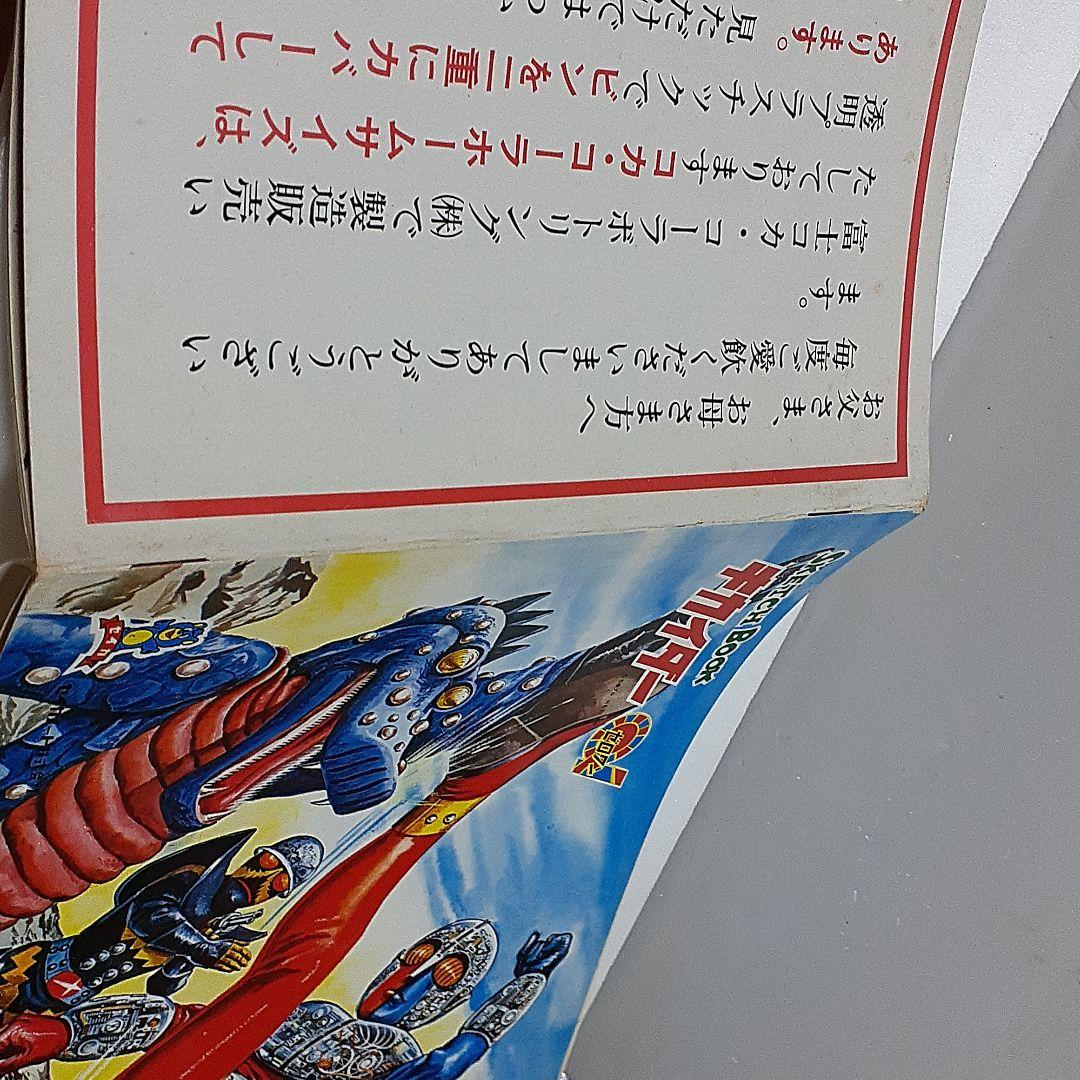 お父さま、お母さま方へ
毎度ご愛飲くださいましてありがとうござい
ます。
富士コカ・コーラボトリング㈱で製造販売い
たしておりますコカ・コーラホームサイズは、
透明プラスチックでビンを二重にカバーして
あります。見ただけではわ
SKETCH BOOK
キカイダー
ゼロワン
セイカ